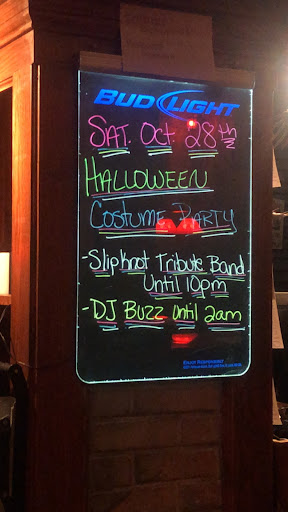 BUD LIGHT
SAT. OCT. 28th
HALLOWEEN
COSTUME PARTY
-Slipknot Tribute Band
Until 10pm
-DJ BUZZ Until 2am